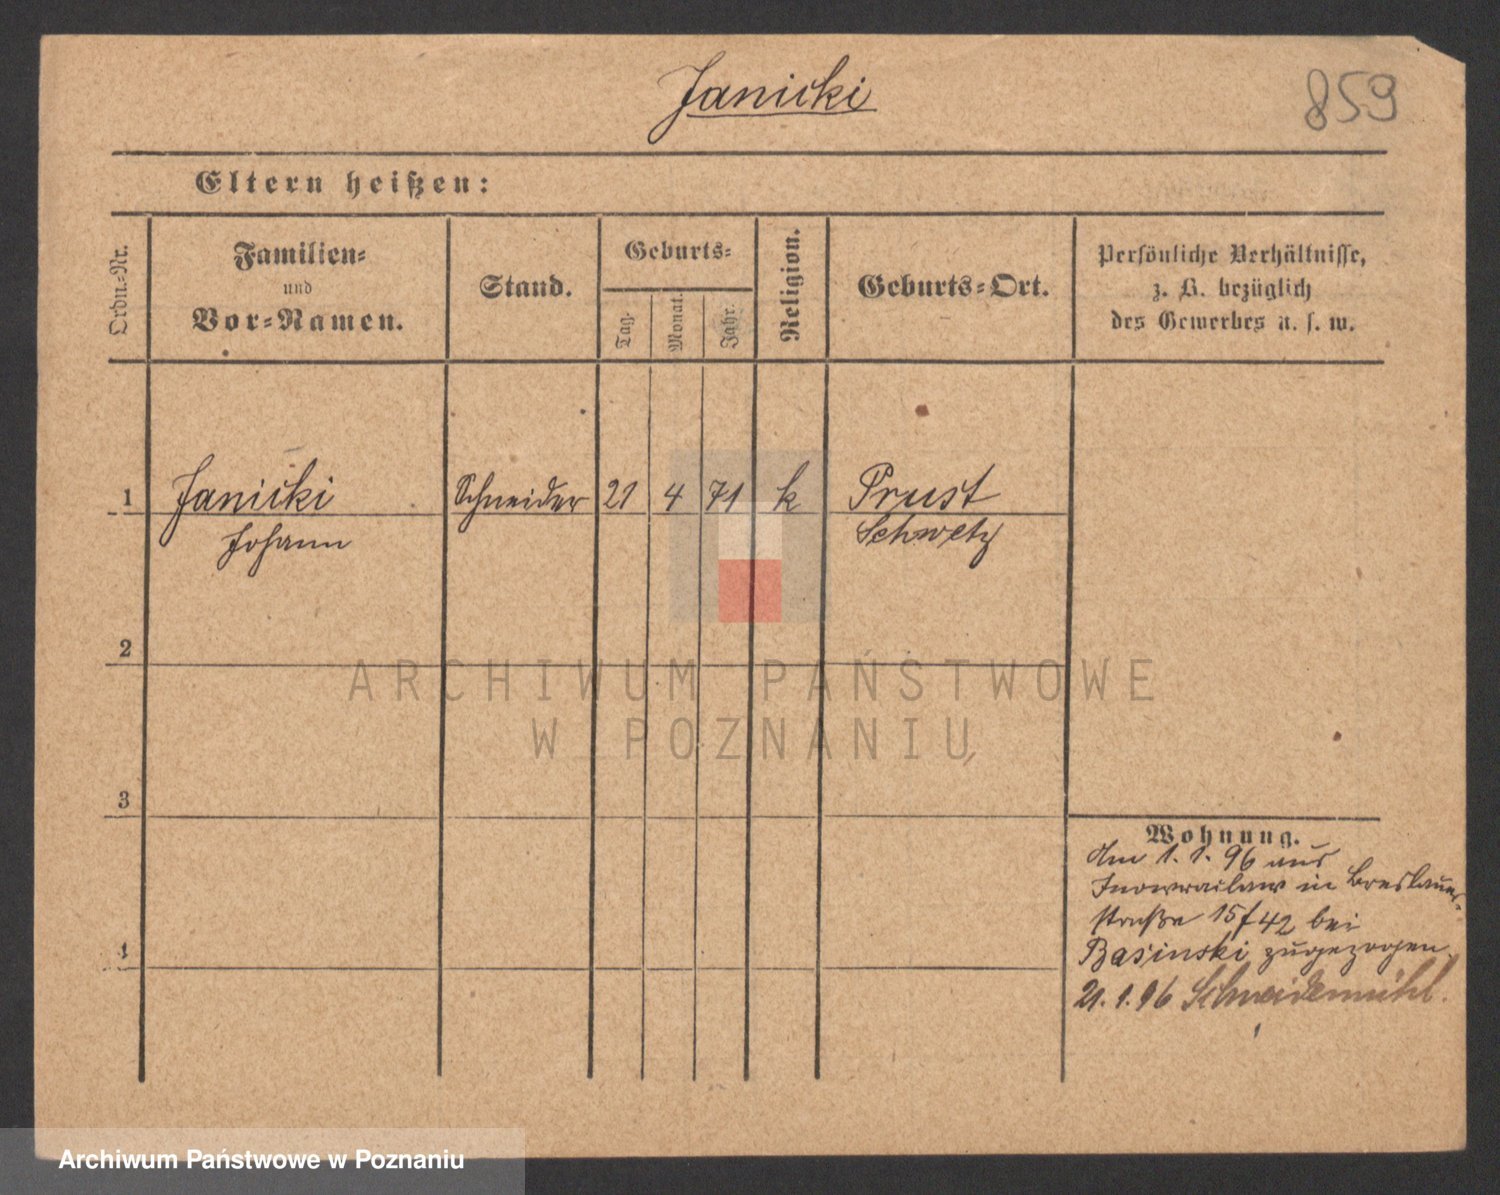 Janicki
859
Eltern heißen:
Ordn.-Nr.
Familien-
und
Vor-Namen.
Stand.
Geburts-
Tag.
Monat.
Jahr.
Religion.
Geburts-Ort.
Persönliche Verhältnisse,
z. B. bezüglich
des Gewerbes u. s. w.
1 Janicki Schneider 21 4 71 k Prust
Johann Schwetz
2
3
4
Wohnung.
Am 1. 1. 96 aus
Inowrazlaw in Breslauer-
straße 15 f 42 bei
Basinski zugezogen
21. 1. 96 Schneidemühl.
ARCHIWUM PAŃSTWOWE
W POZNANIU
Archiwum Państwowe w Poznaniu